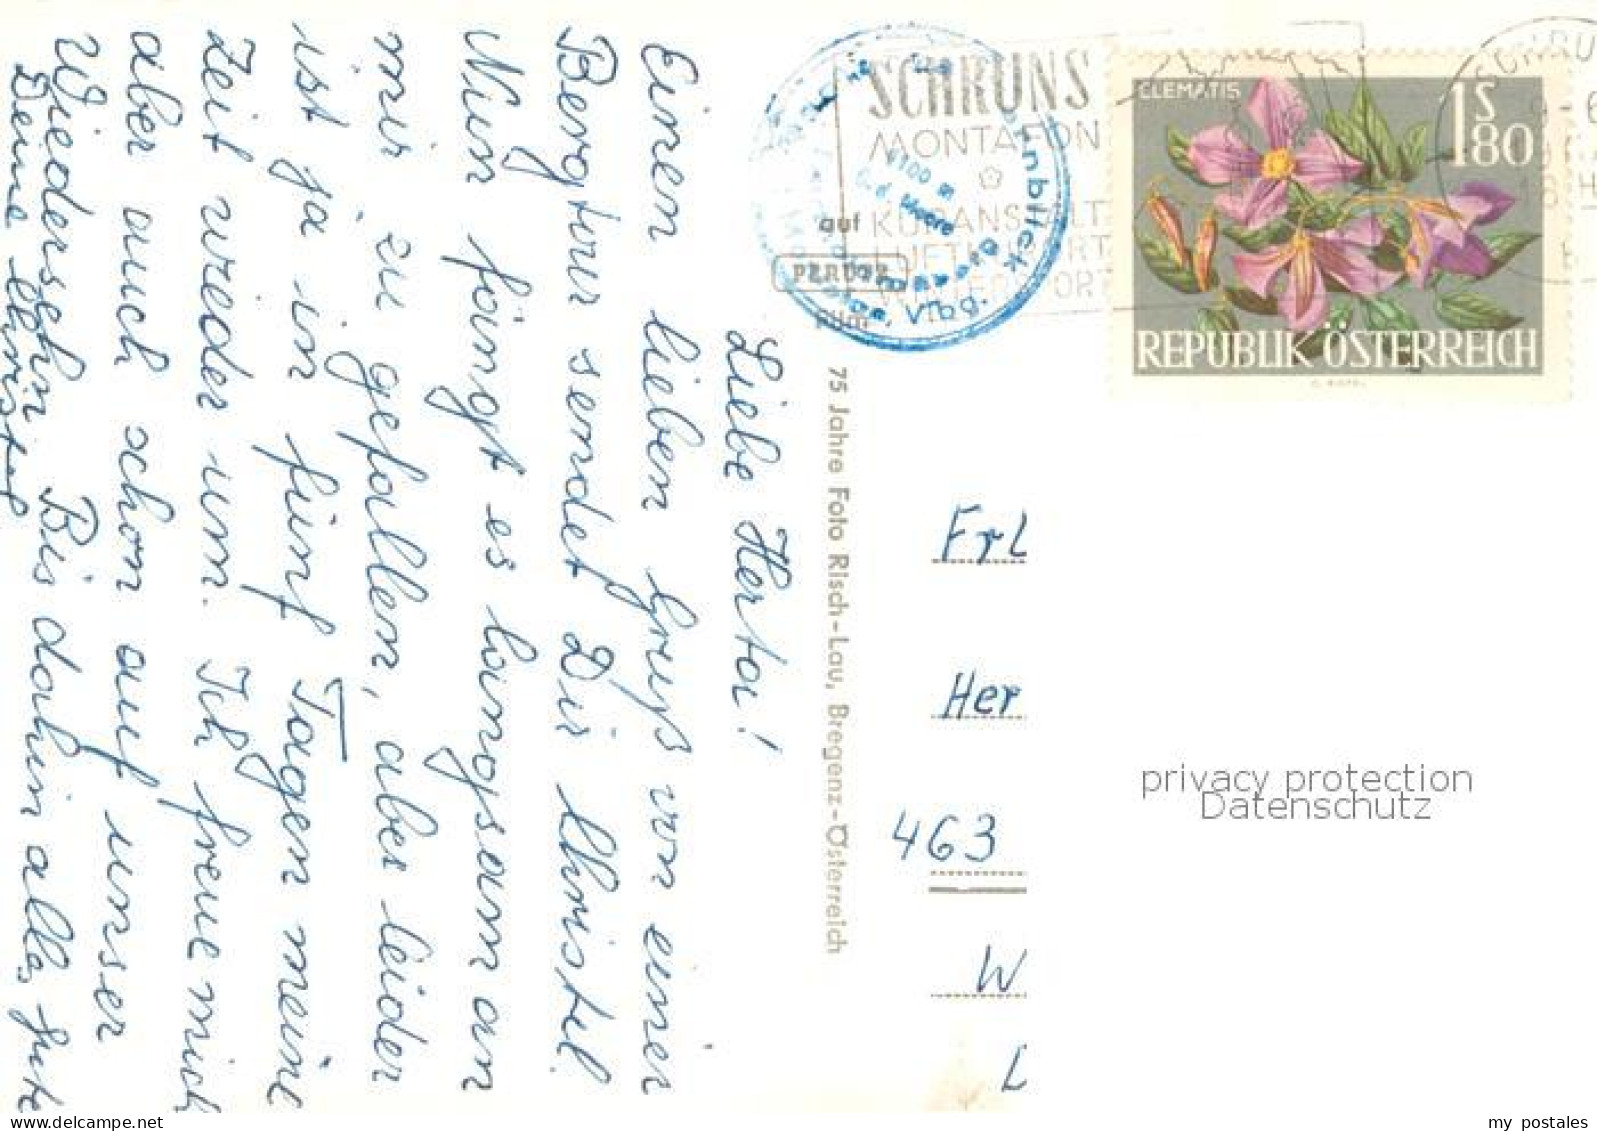 Liebe Herta!
Einen lieben Gruß von einer
Bergtour sendet Dir Christel.
Nun fängt es langsam an
mir zu gefallen, aber leider
ist ja in fünf Tagen meine
Zeit wieder um. Ich freue mich
aber auch schon auf unser
Wiedersehn. Bis dahin alles Gute
Deine Christel
75 Jahre Foto Risch-Lau, Bregenz-Österreich
auf
PERUTZ
Film
SCHRUNS
MONTAFON
KURANSTALT
LUFTKURORT
WINTERSPORT
1100 m
ü. d. Meere
Vlbg.
CLEMATIS
1S
80
REPUBLIK ÖSTERREICH
SCHRU
Frl
Her
463
W
L
privacy protection
Datenschutz
my postales